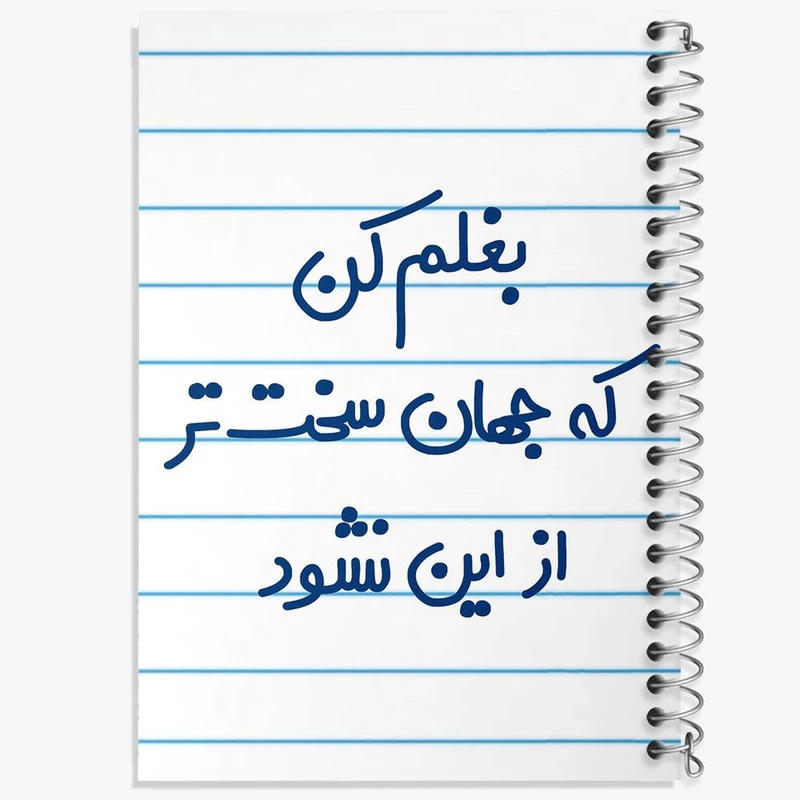 بغلم کن
که جهان سخت‌تر
از این نشود